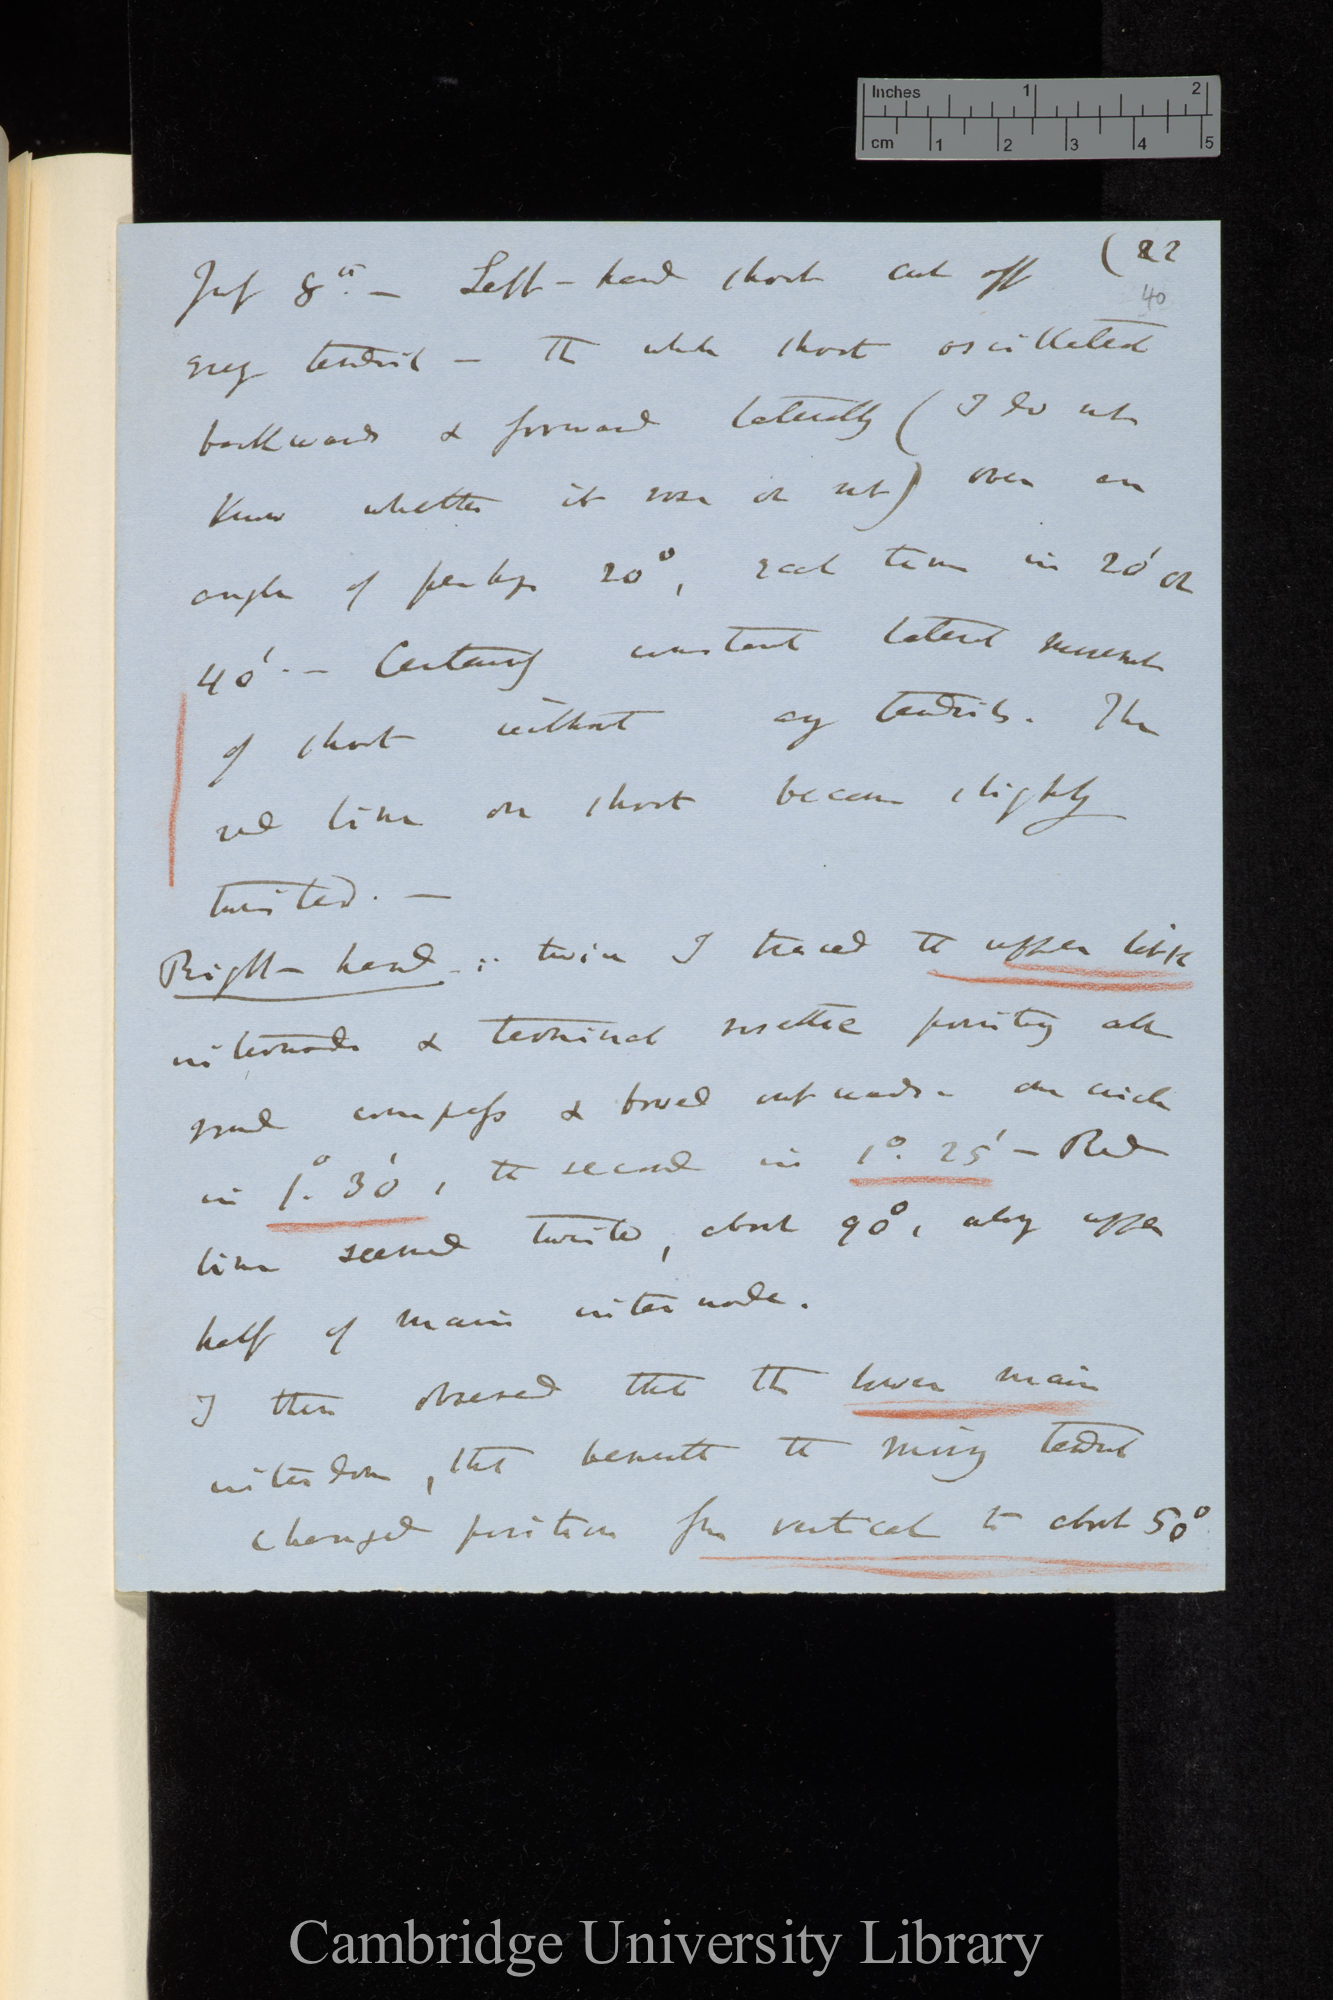 Inches 1 2
cm 1 2 3 4 5
(22
40
July 8th. — Left-hand shoot cut off
every tendril — The whole shoot oscillated
backwards & forward laterally (I do not
know whether it rose or not) over an
angle of perhaps 20°, each time in 20' or
40'. — Certainly constant lateral movement
of shoot without any tendrils. The
red line on shoot became slightly
twisted. —
Right-hand .: twice I traced the upper little
internode & terminal rosette pointing all
round compass & bowed outwards. one circle
in 1°. 30', the second in 1°. 25' — Red
line seemed twisted, about 90°, along upper
half of main internode.
I then observed that the lower main
, that beneath the moving tendril
changed position from vertical to about 50°
Cambridge University Library